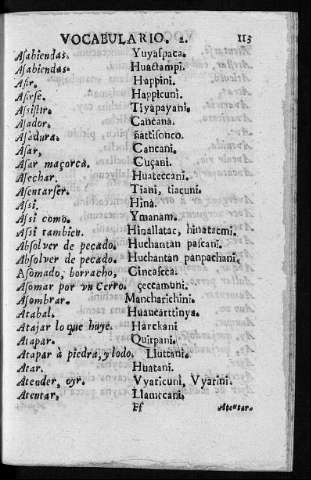 VOCABULARIO. 2. 113
Asabiendas. Yuyaspaca.
Asabiendas. Huactampi.
Asir. Happini.
Asirse. Happicuni.
Assistir. Tiyapayani.
Asador. Cancana.
Asadura. ñattisonco.
Asar. Cancani.
Asar maçorca. Cuçani.
Asechar. Huateccani.
Asentarse. Tiani, tiacuni.
Assi. Hina.
Assi como. Ymanam.
Assi tambien. Hinallatac, hinatacmi.
Absolver de pecado. Huchantan pascani.
Absolver de pecado. Huchantan panpachani.
Asomado, borracho, Cincascca.
Asomar por un Cerro. çeccamuni.
Asombrar. Mancharichini.
Atabal. Huancarttinya.
Atajar lo que huye. Harckani
Atapar. Quirpani.
Atapar à piedra, y lodo. Lluttani.
Atar. Huatani.
Atender, oyr. Vyaricuni, Vyarini.
Atentar. Llamccani.
Ff Atentar.